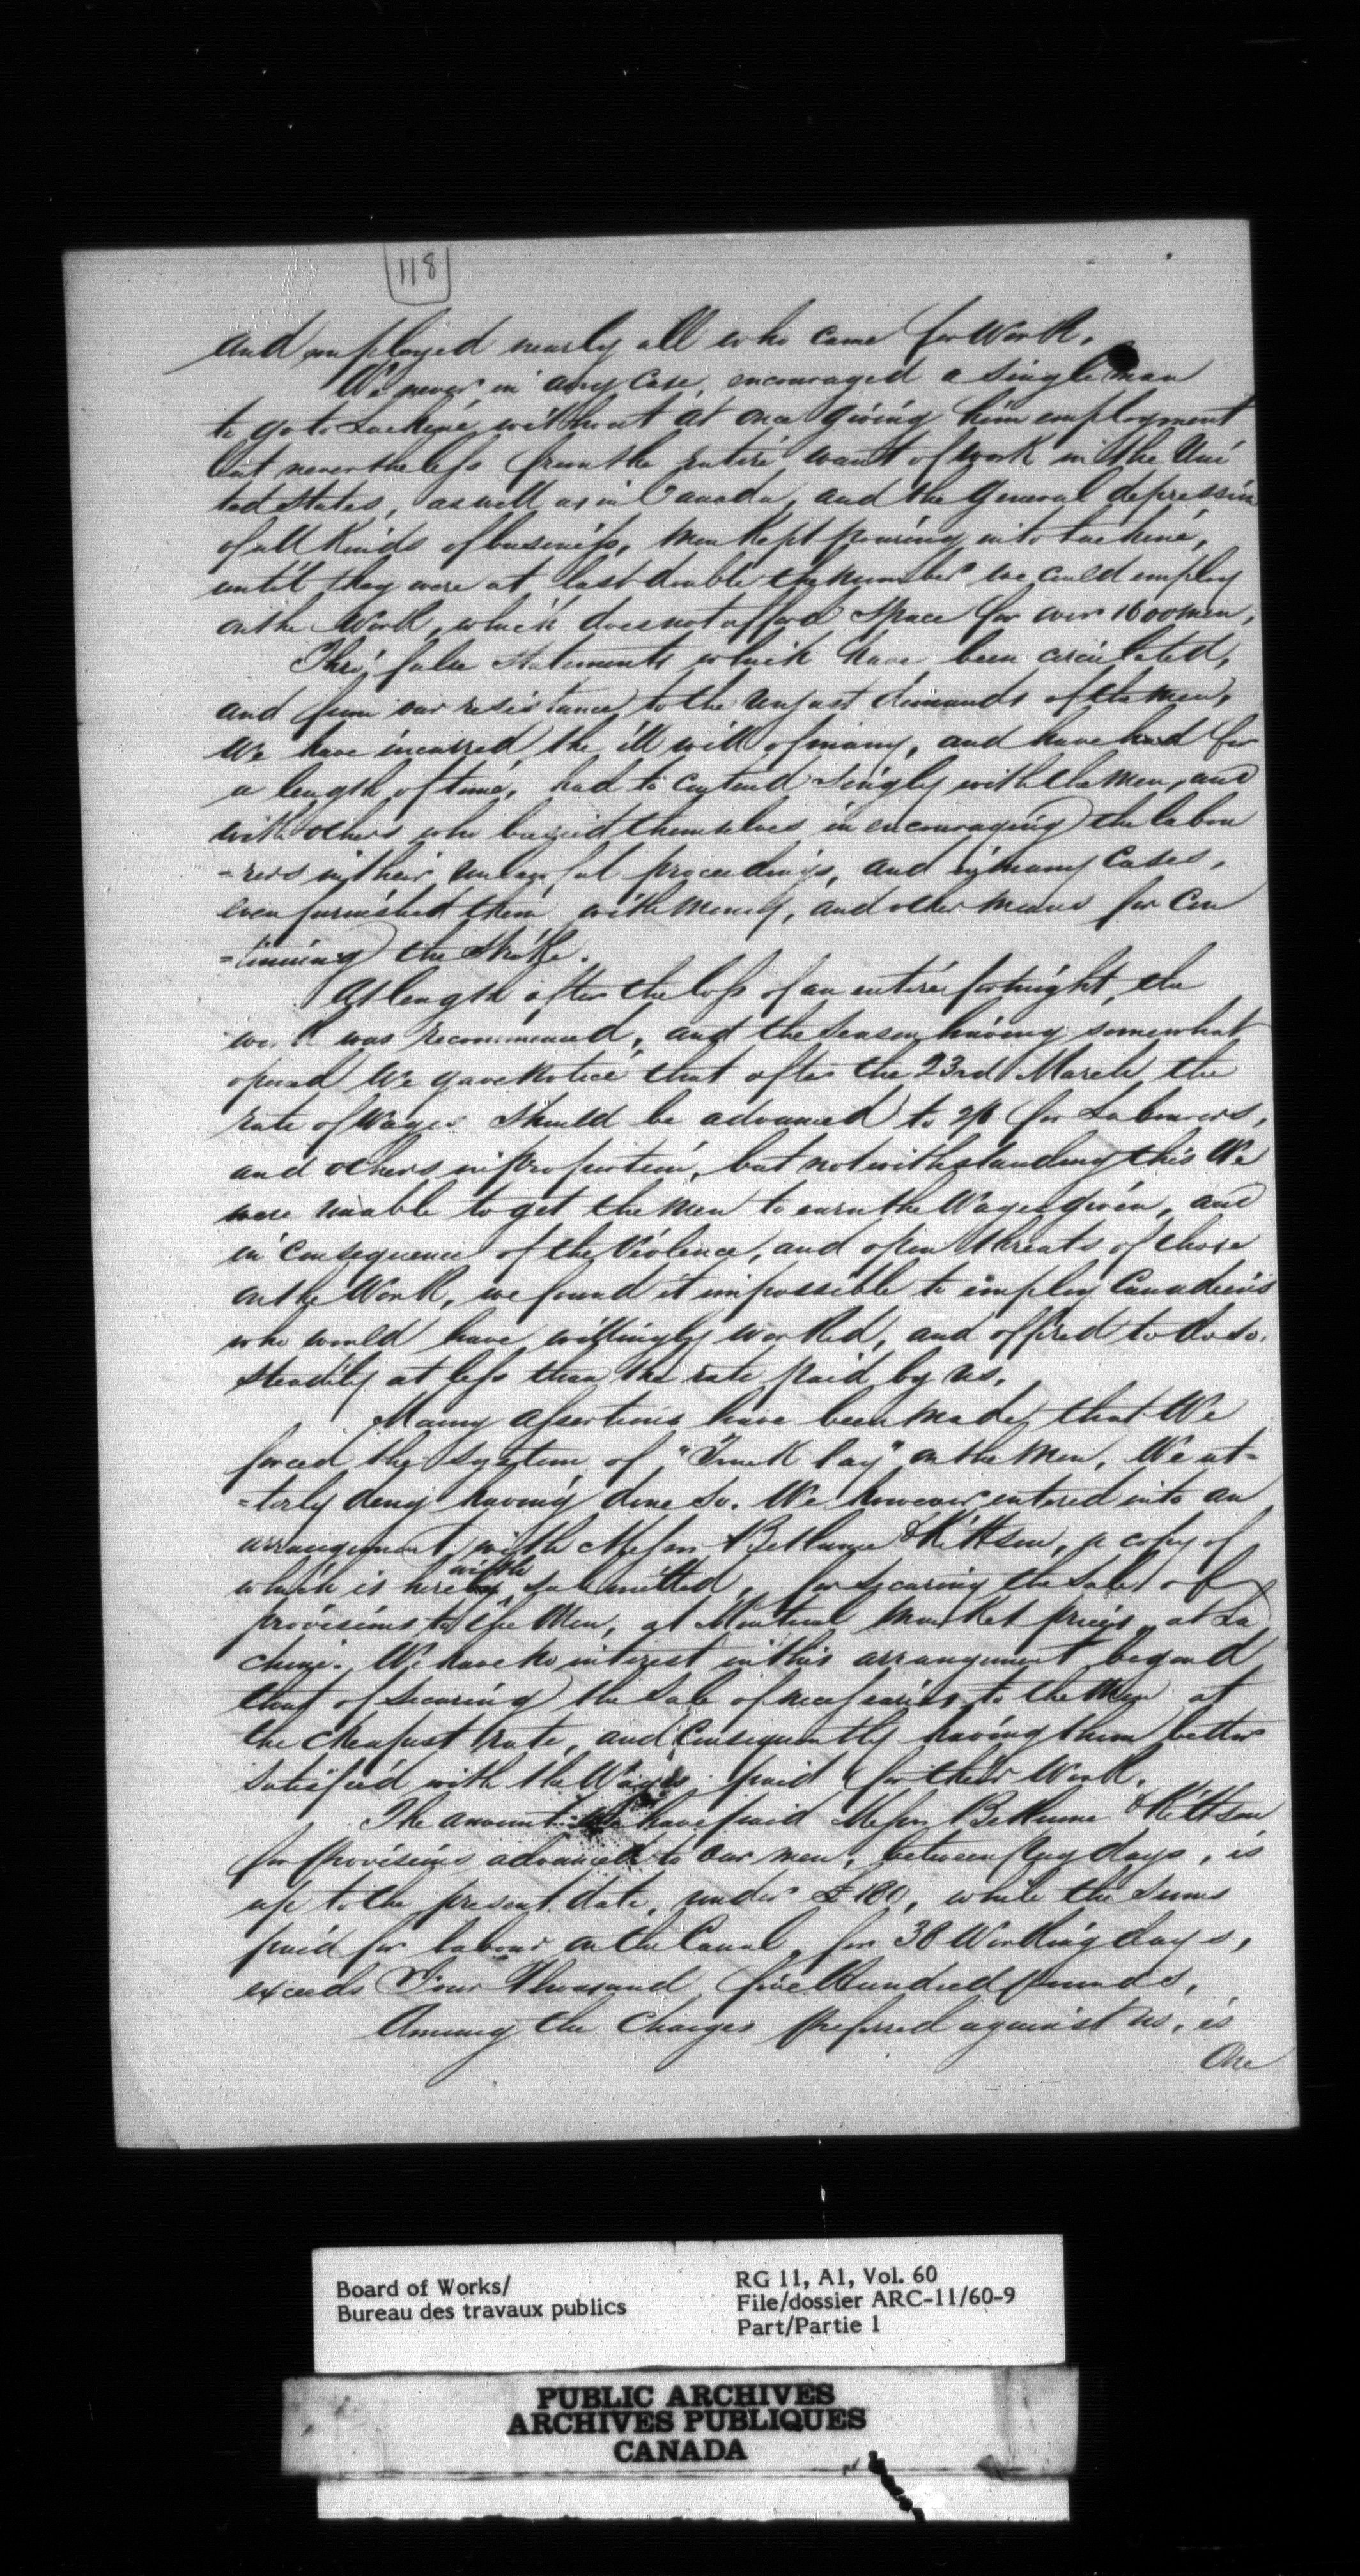 118
and employed nearly all who came for Work.
We never in any Case, encouraged a single man
to go to Lachine without at once giving him employment
but nevertheless from the entire want of work in the Uni
ted States, as well as in Canada, and the General depression
of all Kinds of business, men Kept pouring into Lachine,
until they were at last double the number we could employ
on the Work, which does not afford Space for over 1600 men,
Thro' false statements which have been circulated,
and from our resistance to the unjust demands of the men,
We have incurred the ill will of many, and have had for
a length of time, had to contend singly with the men, and
with others who busied themselves in encouraging the labou
=rers in their unlawful proceedings, and in many Cases,
even furnished them with money, and other means for Con
=tinuing the Strike.
At length after the loss of an entire fortnight, the
work was recommenced, and the Season having somewhat
opened We gave notice that after the 23rd March the
rate of Wages should be advanced to 2/6 for Labourers,
and others in proportion, but notwithstanding this We
were unable to get the men to earn the Wages given, and
in Consequence of the Violence, and open threats of those
on the Work, we found it impossible to employ Canadiens
who would have willingly worked, and offered to do so.
steadily at less than the rate paid by us.
Many assertions have been made, that We
forced the System of "Truck Pay" on the Men, We ut=
=terly deny having done so. We however entered into an
arrangement with Messrs Bethune & Kittson, a copy of
with
which is hereby submitted, for securing the Sale of
provisions to the Men, at Montreal market prices, at La
chine. We have no interest in this arrangement beyond
that of Securing the Sale of necessaries to the Men at
the cheapest rate, and Consequently having them better
satisfied with the Wages paid for their Work.
The amount we have paid Messrs Bethune & Kittson
for Provisions advanced to our men, between pay days, is
up to the present date, under £100, while the sums
paid for labour on the Canal, for 38 Working days,
exceeds Four Thousand five Hundred pounds,
Among the Charges preferred against us, is
One
Board of Works/
Bureau des travaux publics
RG 11, A1, Vol. 60
File/dossier ARC-11/60-9
Part/Partie 1
PUBLIC ARCHIVES
ARCHIVES PUBLIQUES
CANADA